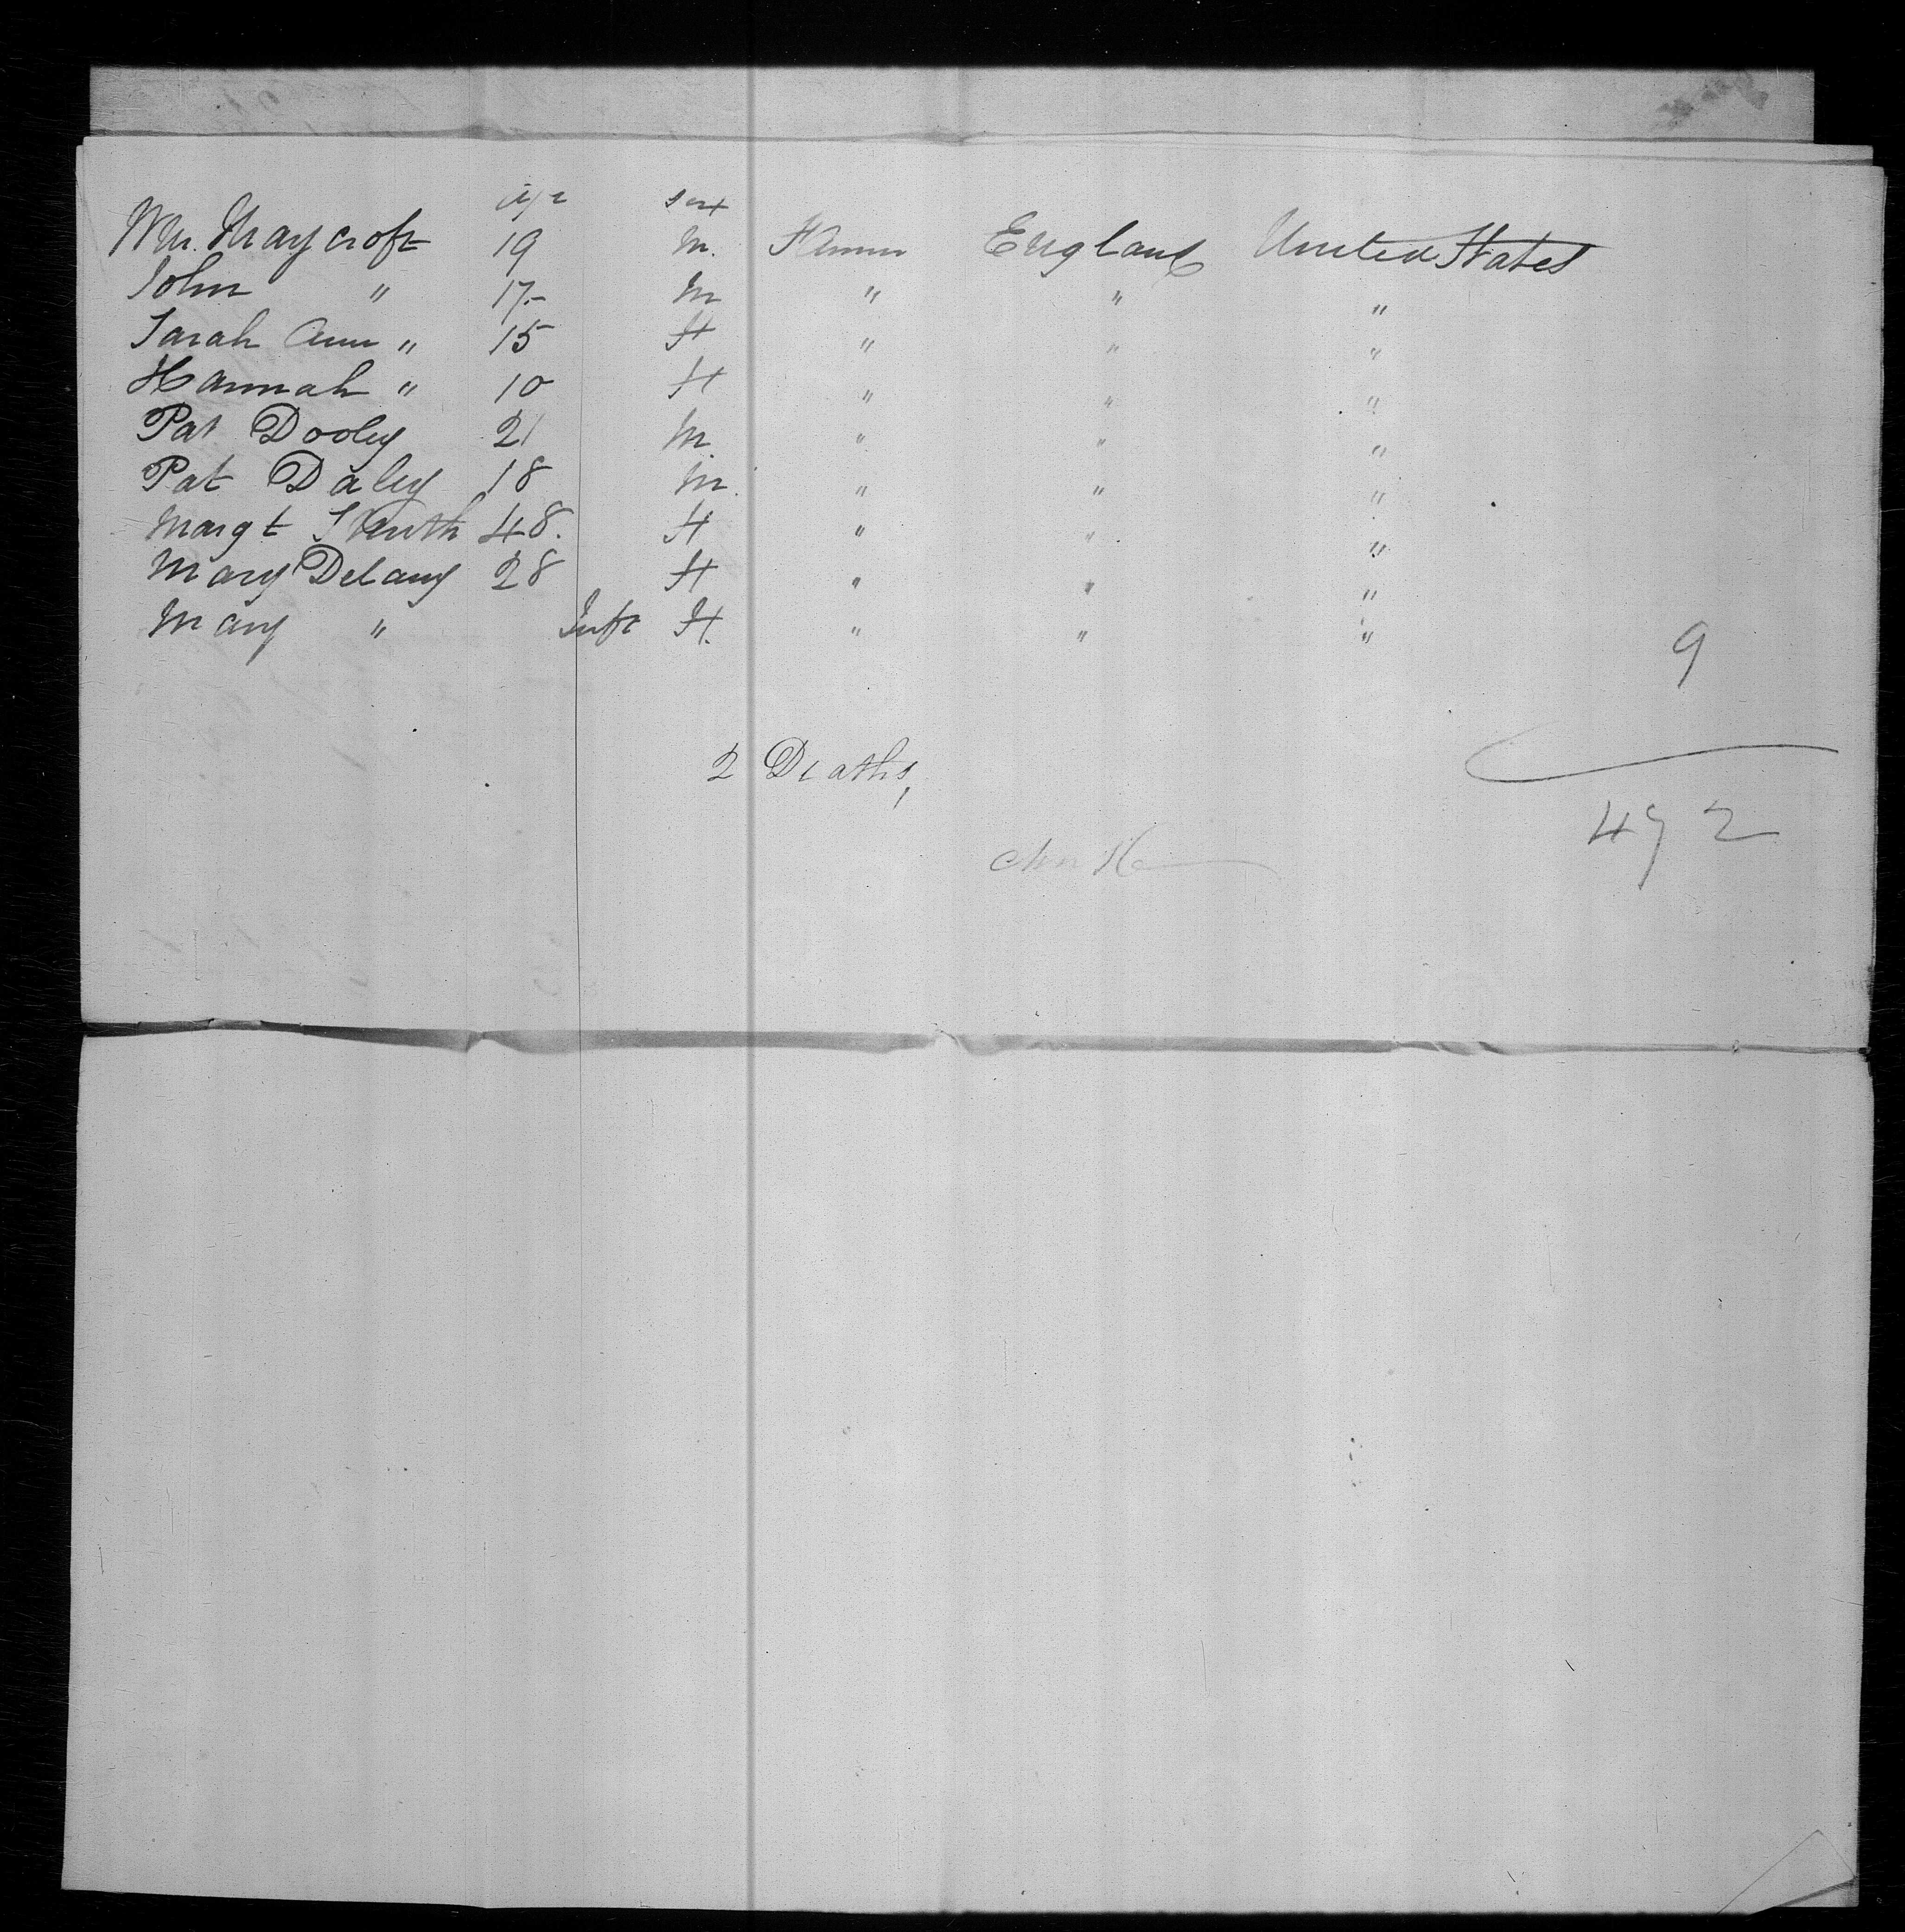 age sex
Wm. Maycroft 19 M. Farmer England United States
John " 17 M " " "
Sarah Ann " 15 F " " "
Hannah " 10 F " " "
Pat Dooley 21 M. " " "
Pat Daley 18 M. " " "
Margt Smith 48. F " " "
Mary Delany 28 F " " "
Mary " Inft F. " " "
9
2 Deaths,
492